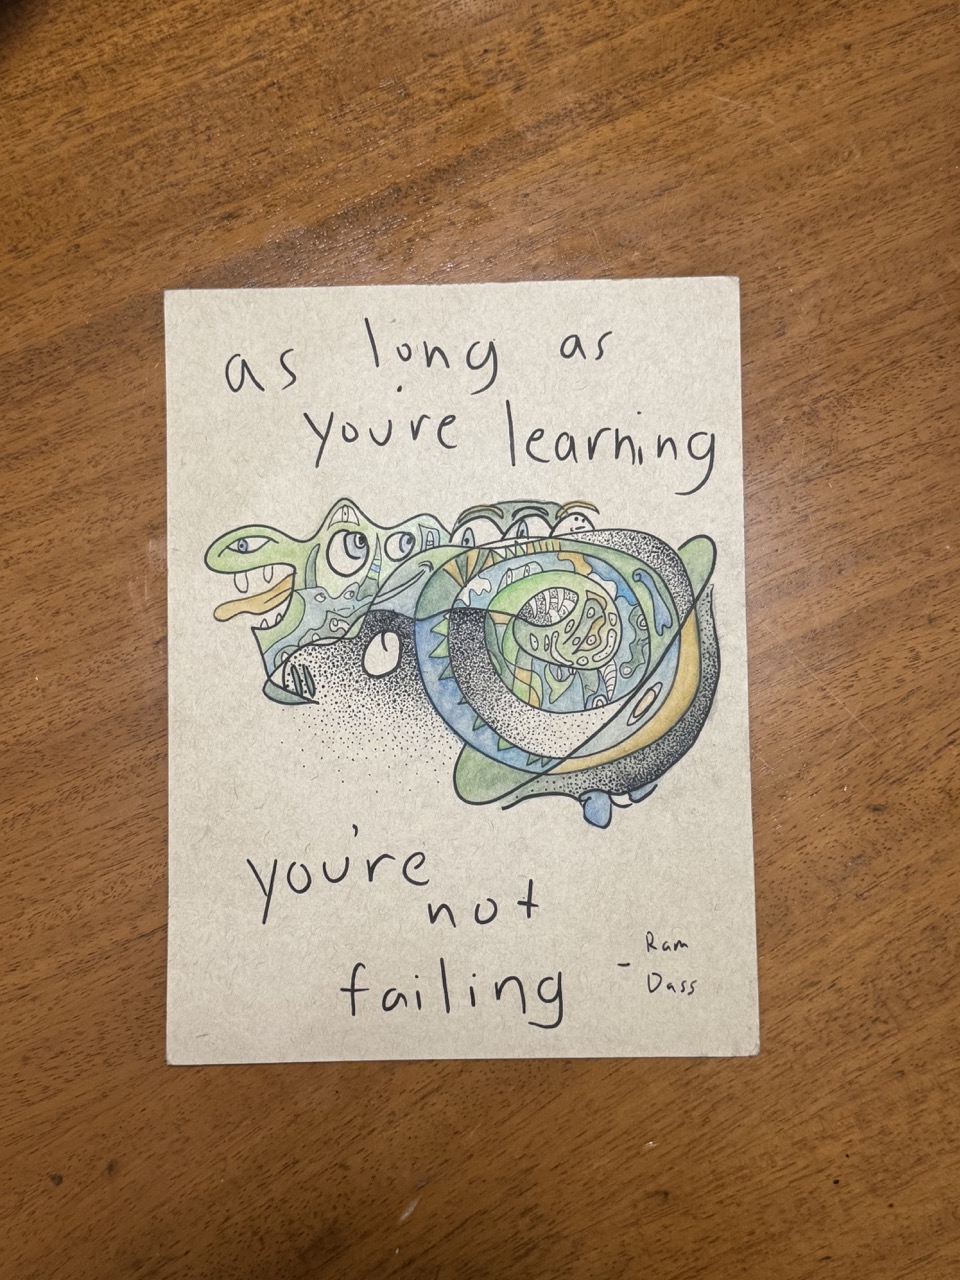 as long as
you're learning
you're
not
failing
- Ram
Dass